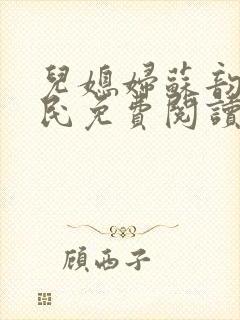 兒媳婦蘇韵
民免費閱讀
顧西子